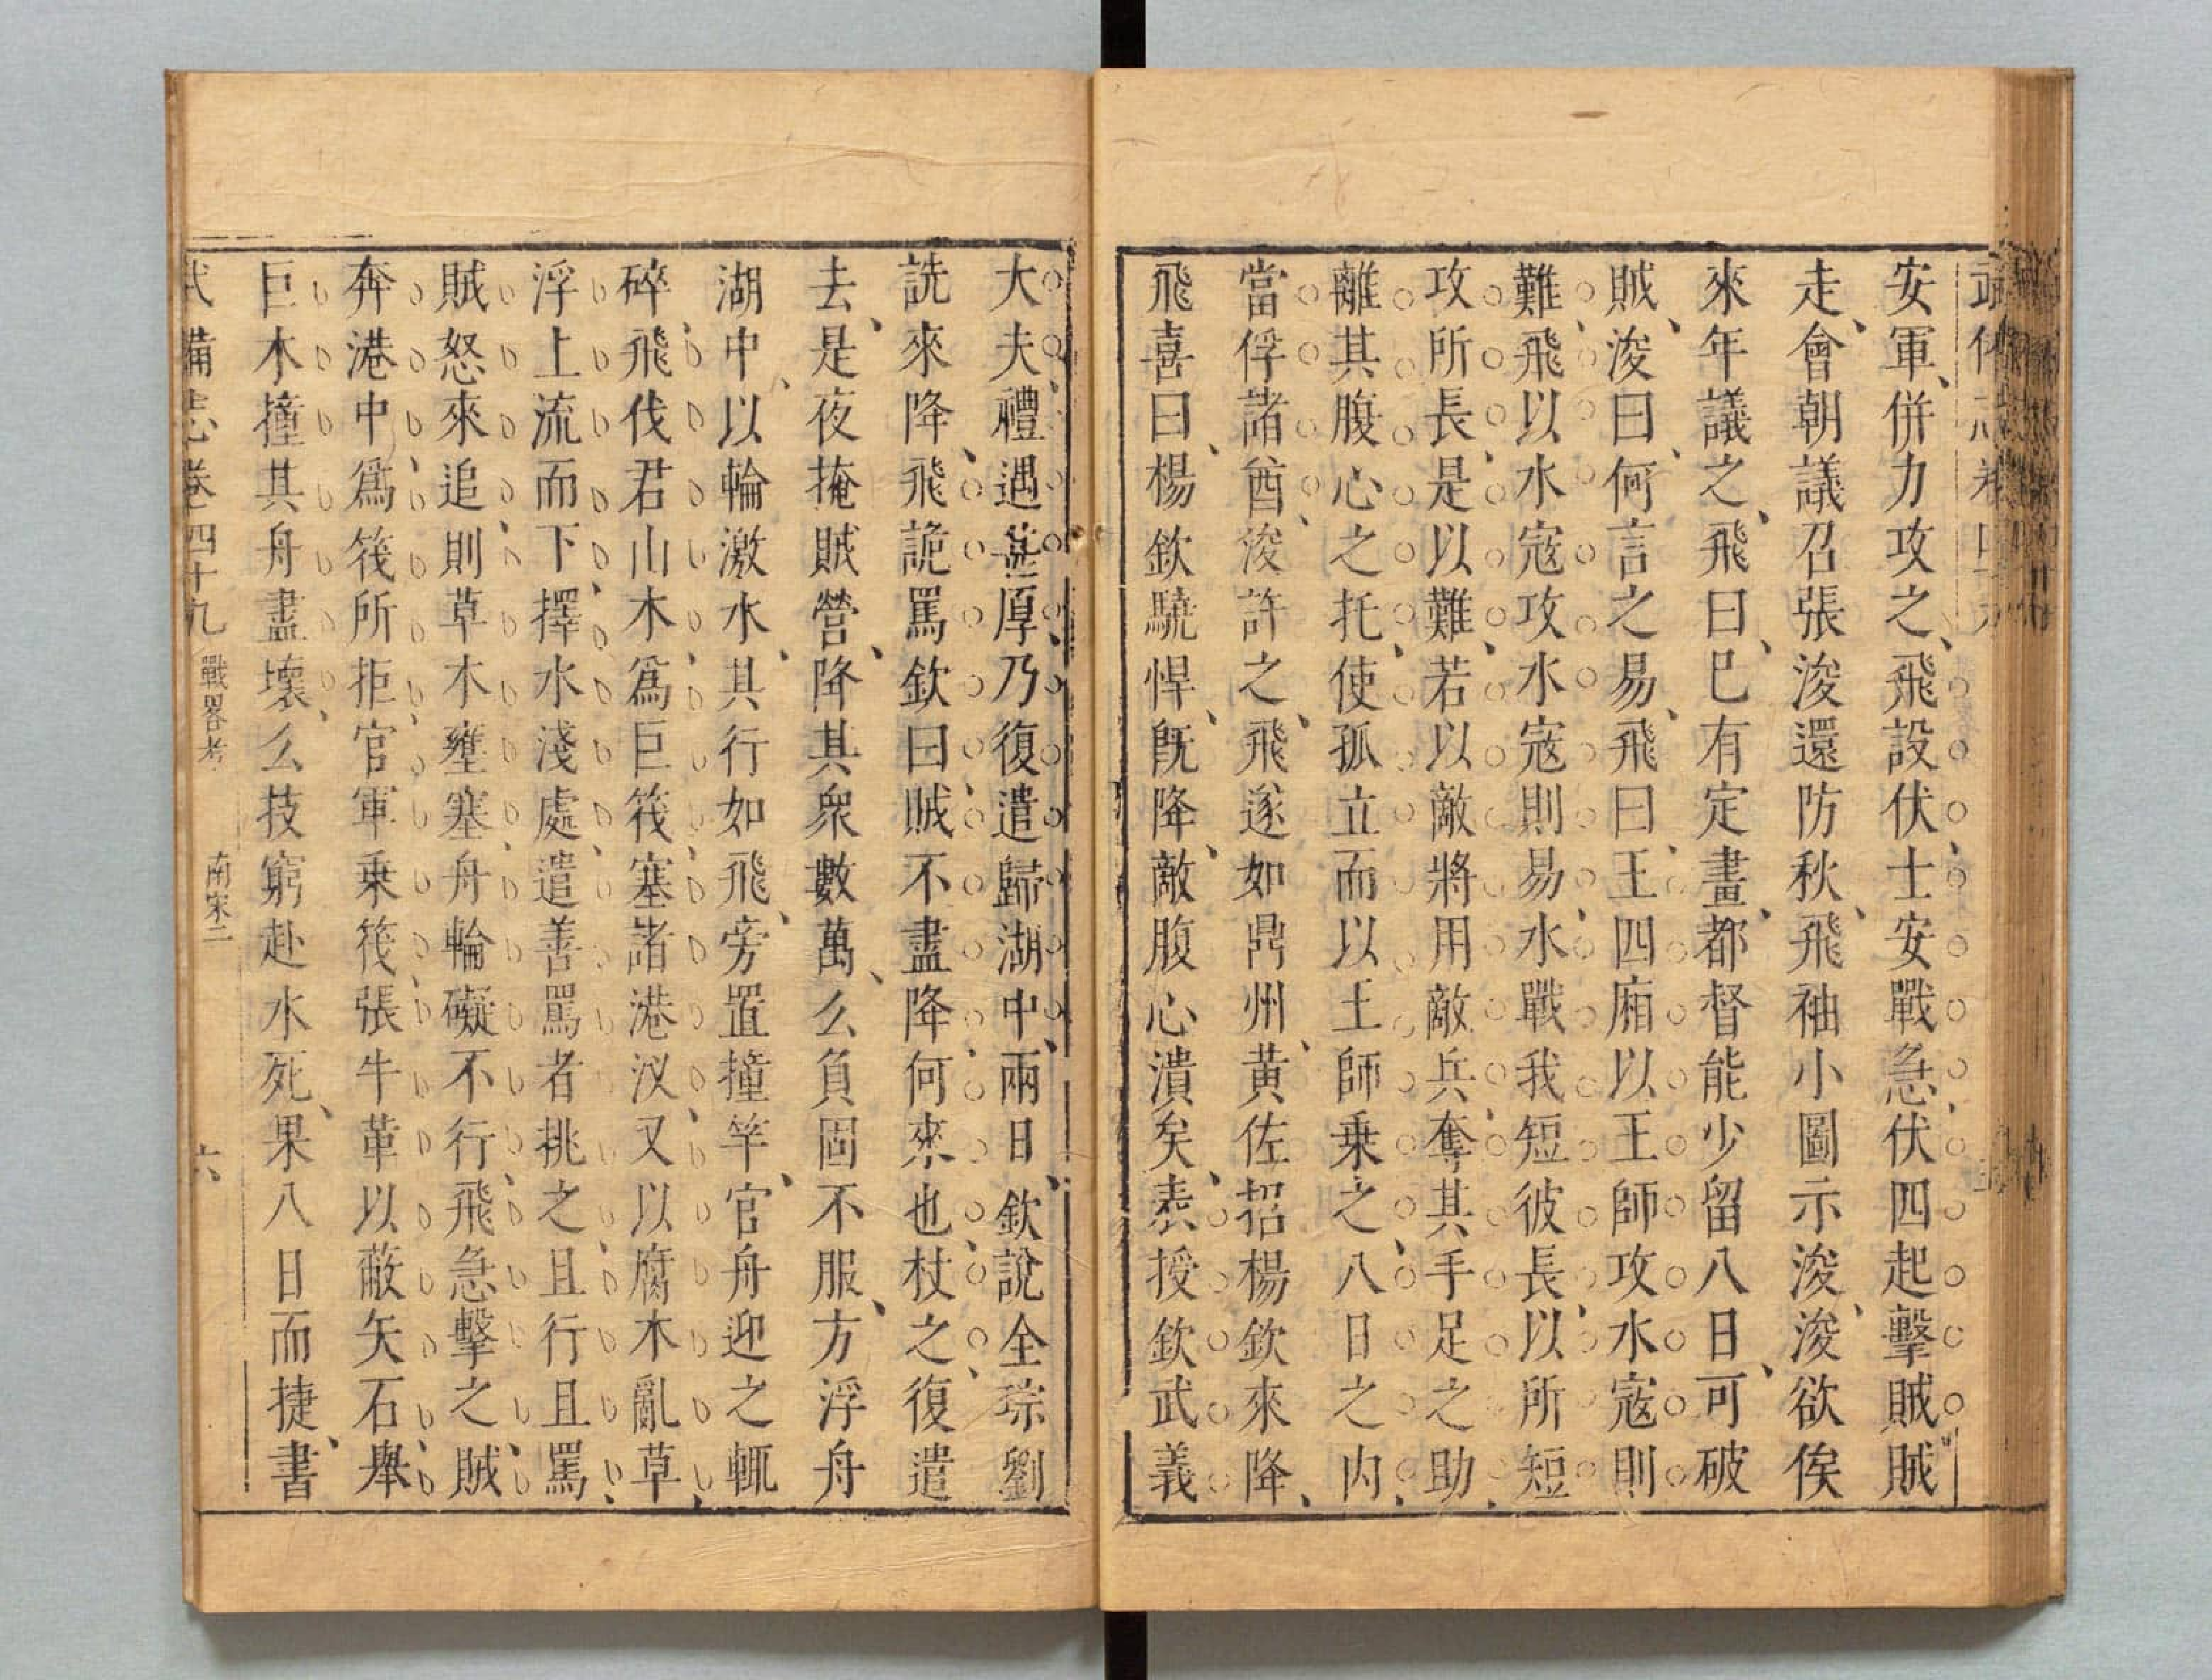 安軍、併力攻之、飛設伏、士安戰急、伏四起擊賊賊
走、會朝議召張浚還防秋、飛袖小圖示浚、浚欲俟
來年議之、飛曰、巳有定畫、都督能少留八日、可破
賊、浚曰、何言之易、飛曰、王四廂以王師攻水寇則
難、飛以水寇攻水寇則易、水戰我短彼長、以所短
攻所長、是以難、若以敵將用敵兵、奪其手足之助、
離其腹心之托、使孤立而以王師乗之、八日之内、
當俘諸酋、浚許之、飛遂如鼎州、黄佐招楊欽來降、
飛喜曰、楊欽驍悍、旣降、敵腹心潰矣、表授欽武義
大夫、禮遇甚厚、乃復遣歸湖中、兩日、欽說全琮劉
詵來降、飛詭罵欽曰、賊不盡降、何來也、杖之、復遣
去、是夜掩賊營、降其衆數萬、么負固不服、方浮舟
湖中、以輪激水、其行如飛、旁置撞竿、官舟迎之輒
碎、飛伐君山木、爲巨筏、塞諸港汊、又以腐木亂草、
浮上流而下、擇水淺處、遣善罵者挑之、且行且罵、
賊怒來追、則草木壅塞、舟輪礙不行、飛急擊之、賊
奔港中、爲筏所拒、官軍乗筏、張牛革以蔽矢石、舉
巨木撞其舟盡壞、么技窮赴水死、果八日而捷書、
武備志卷四十九 戰畧考 南宋二 六